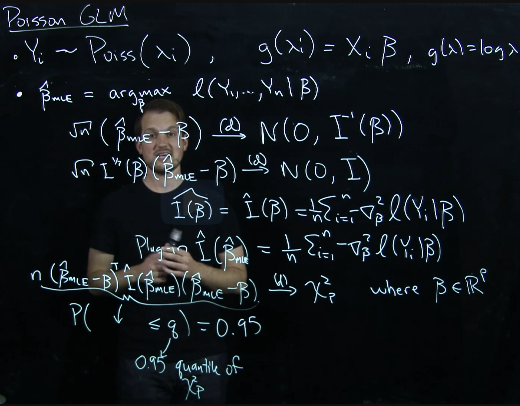 Poisson GLM
• Yᵢ ~ Poiss(λᵢ) , g(λᵢ) = Xᵢ β , g(λ) = log λ
• β̂_MLE = argmax_β ℓ(Yᵢ,...,Yₙ|β)
√n (β̂_MLE − β) →(d) N(0, I⁻¹(β))
√n I^½(β)(β̂_MLE − β) →(d) N(0, I)
Î(β) = Î(β) = 1/n Σᵢ₌₁ⁿ −∇²_β ℓ(Yᵢ|β)
Plug-in Î(β̂_MLE = 1/n Σᵢ₌₁ⁿ −∇²_β ℓ(Yᵢ|β)
n (β̂_MLE − β)ᵀ Î(β̂_MLE)(β̂_MLE − β) →(d) χ²_p where β ∈ ℝᵖ
P( ↓ ≤ q) = 0.95
0.95 quantile of
χ²_p